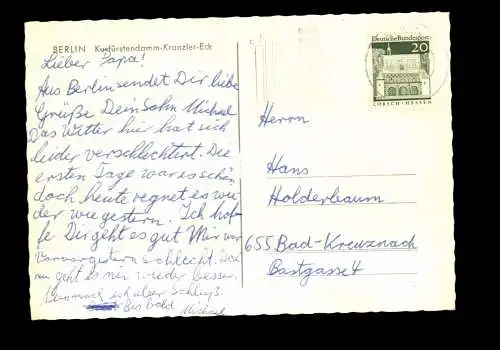 BERLIN Kurfürstendamm-Kranzler-Eck
Lieber Papa!
Aus Berlin sendet Dir liebe
Grüße Dein Sohn Michael
Das Wetter hier hat sich
leider verschlechtert. Die
ersten Tage war es schön
doch heute regnet es wie
der wie gestern. Ich hof-
fe Dir geht es gut Mir war
vorvorgestern schlecht.
nun geht es mir wieder besser.
ich aber Schluß.
Bis bald
Michael
Deutsche Bundespost
20
LORSCH · HESSEN
Herrn
Hans
Holderbaum
655 Bad-Kreuznach
Bastgasse 4